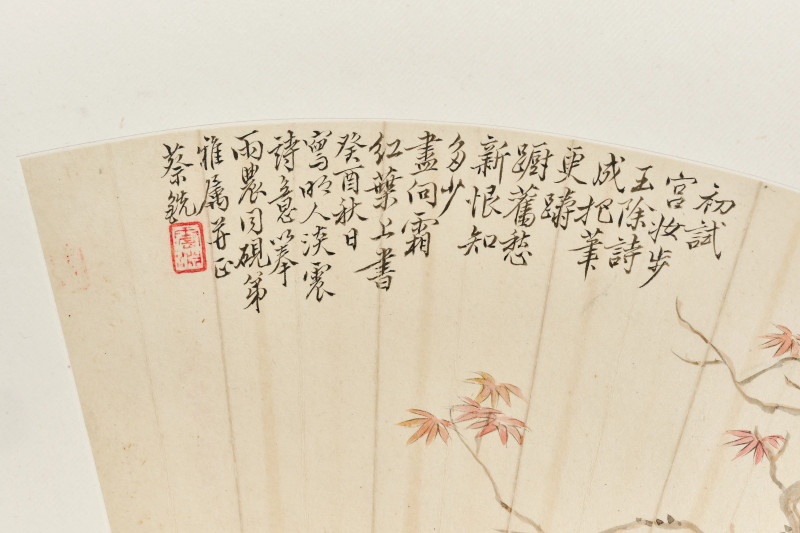 初試
宮妝步
玉除詩
成把筆
更躊
躕舊愁
新恨知
多少
盡向霜
紅葉上書
癸酉秋日
寫明人
詩意以奉
雨農同硯弟
雅屬并正
蔡銑